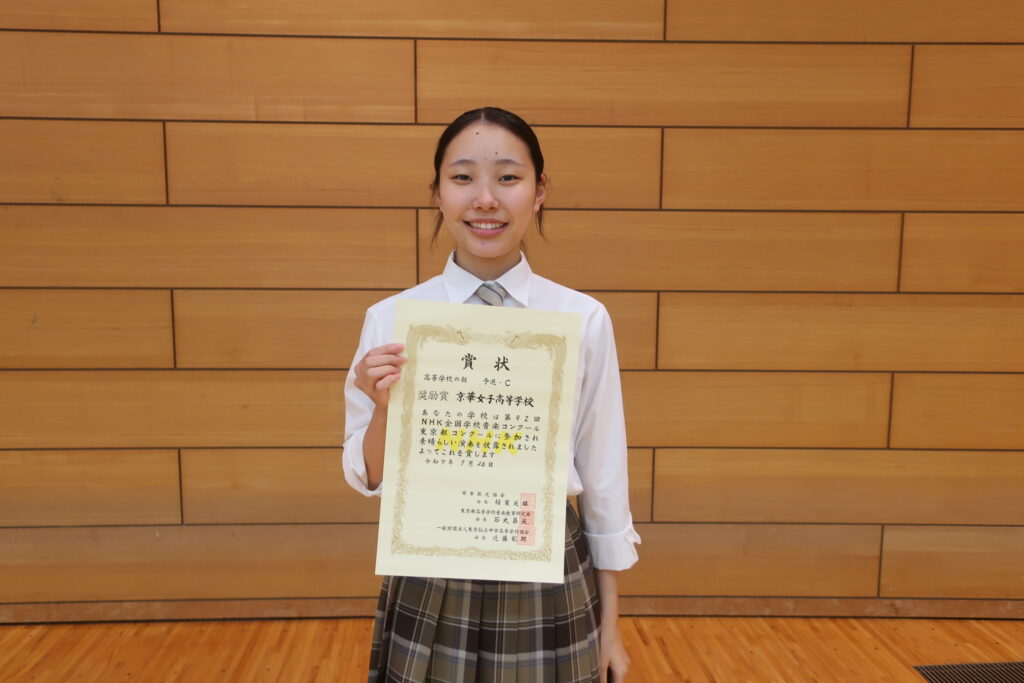 賞状
高等学校の部 予選・C
奨励賞 京華女子高等学校
あなたの学校は第92回
NHK全国学校音楽コンクール
東京都コンクールに参加され
素晴らしい演奏を披露されました
よってこれを賞します
令和7年7月26日
日本放送協会
会長 稲葉延雄
東京都高等学校音楽教育研究会
会長
一般財団法人東京私立中学高等学校協会
会長 近藤彰郎